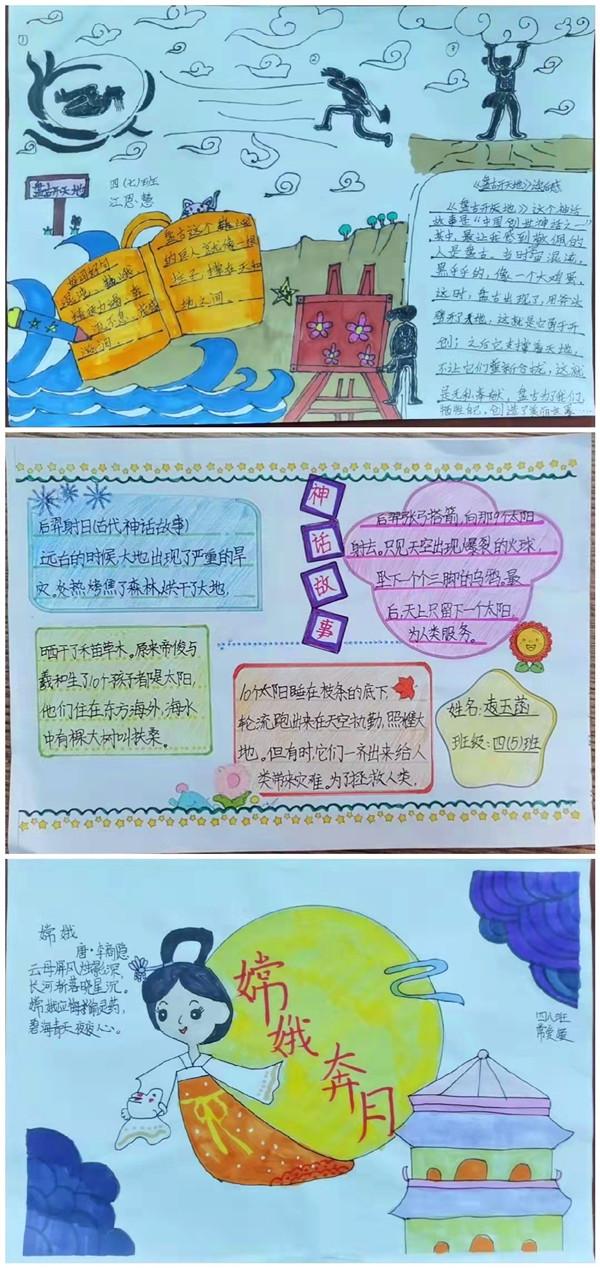 ①
②
③
盘古开天地
四(七)班
江思慧
盘古这个
的巨人,就像一根
柱子,撑在天和
地之间。
《盘古开天地》读后感
《盘古开天地》这个神话
故事是“中国创世神话之一”
其中,最让我感到敬佩的
人是盘古。当时
黑乎乎的,像一个大鸡蛋,
这时,盘古出现了,用斧头
劈开了天地,这就是它勇于开
创;之后它支撑着天地,
不让它们重新合拢,这就
是无私奉献,盘古为了我们
牺牲自己,创造了美丽世界…
神
话
故
事
后羿射日(古代神话故事)
远古的时候,大地出现了严重的旱
灾。炎热烤焦了森林,烘干了大地,
晒干了禾苗草木。原来帝俊与
羲和生了10个孩子都是太阳,
他们住在东方海外,海水
中有棵大树叫扶桑。
10个太阳睡在枝条的底下,
轮流跑出来在天空执勤,照耀大
地。但有时,它们一齐出来给人
类带来灾难。为了拯救人类,
后羿张弓搭箭,向那9个太阳
射去。只见天空出现爆裂的火球,
坠下一个个三脚的乌鸦。最
后,天上只留下一个太阳,
为人类服务。
姓名:袁玉菡
班级:四(5)班
嫦娥
唐·李商隐
云母屏风烛影深,
长河渐落晓星沉。
嫦娥应悔偷灵药,
碧海青天夜夜心。
嫦娥奔月
四八班